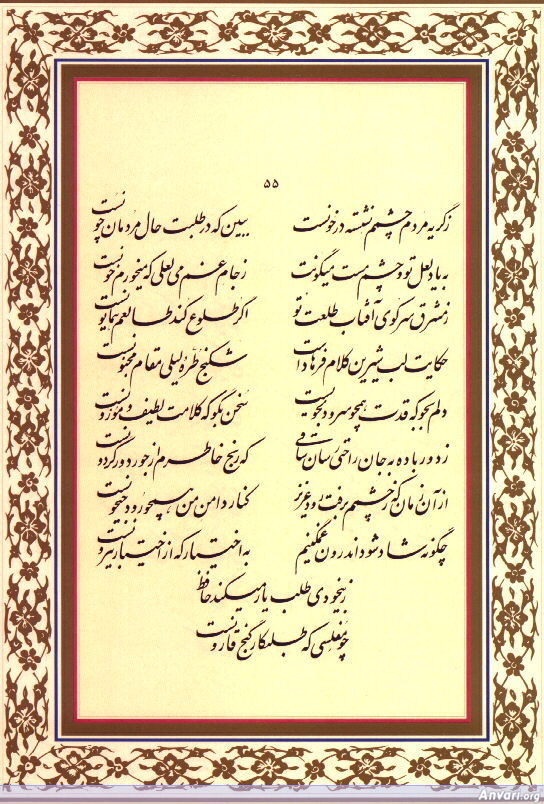 ۵۵
ز گریه مردم چشمم نشسته در خونست ببین که در طلبت حال مردمان چونست
به یاد لعل تو و چشم مست میگونت ز جام غم می لعلی که میخورم خونست
ز مشرق سر کوی آفتاب طلعت تو اگر طلوع کند طالعم همایونست
حکایت لب شیرین کلام فرهاد است شکنج طره لیلی مقام مجنونست
دلم بجو که قدت همچو سرو دلجویست سخن بگو که کلامت لطیف و موزونست
ز دور باده به جان راحتی رسان ساقی که رنج خاطرم از جور دور گردونست
از آن زمان که ز چشمم برفت رود عزیز کنار دامن من همچو رود جیحونست
چگونه شاد شود اندرون غمگینم به اختیار که از اختیار بیرونست
ز بیخودی طلب یار میکند حافظ
چو مفلسی که طلبکار گنج قارونست
Anvari.org